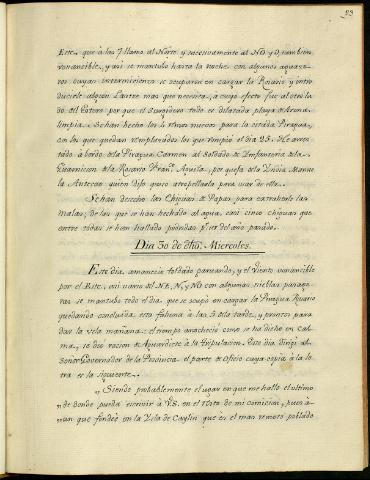 93
Este, que á las 7 llamo al Norte y sucesivamente al NO y O, tambien
vonancible, y asi se mantubo hasta la noche con algunos aguace-
ros cuyas intermiciones se ocuparon en cargar la Rosario y intro
ducirle algun Lastre mas que necesita, a cuyo efecto fue al otro la
do del Estero por que el Surgidero todo es dilatada playa de Arena
limpia. Sehan hecho los 4 remos nuevos para la citada Piragua,
con los que quedan remplazados los que rompió el dia 25. He arres-
tado á bordo de la Piragua Carmen al Soldado de Infanteria de la
Guarnicion de la Rosario Fran.co Aguila, por quefa de la Yndia Manue
la Antecao quien dijo quiso atropellarla para usar de ella.
Sehan desecho las Chiguas de Papas para extraherle las
malas, de las que se han hechado al agua, casi cinco chiguas que
entre todas se han hallado podridas p.r ser del año pasado.
Dia 30 de dho. Miercoles.
Este dia amanecio toldado pardo, y el Viento vonancible
por el Este, mi vario del NE, N, y NO con algunas nieblas pasage
ras se mantubo todo el dia que se ocupó en cargar la Piragua Rosario
quedando concluida esta fahena á las 3 de la tarde, y prontos para
dar la vela mañana: el tiempo anochecio como se ha dicho en Cal-
ma, se dio racion de Aguardiente á la tripulacion. Este dia dirigi al
Señor Governador de la Provincia el parte de Oficio cuya copia á la le-
tra es la siguiente.
„Siendo probablemente el lugar en que me hallo el ultimo
„de donde pueda escrivir á V.S. en el Viaje de mi comicion, pues á-
„un que fondeé en la Ysla de Caylin que es el mas remoto poblado